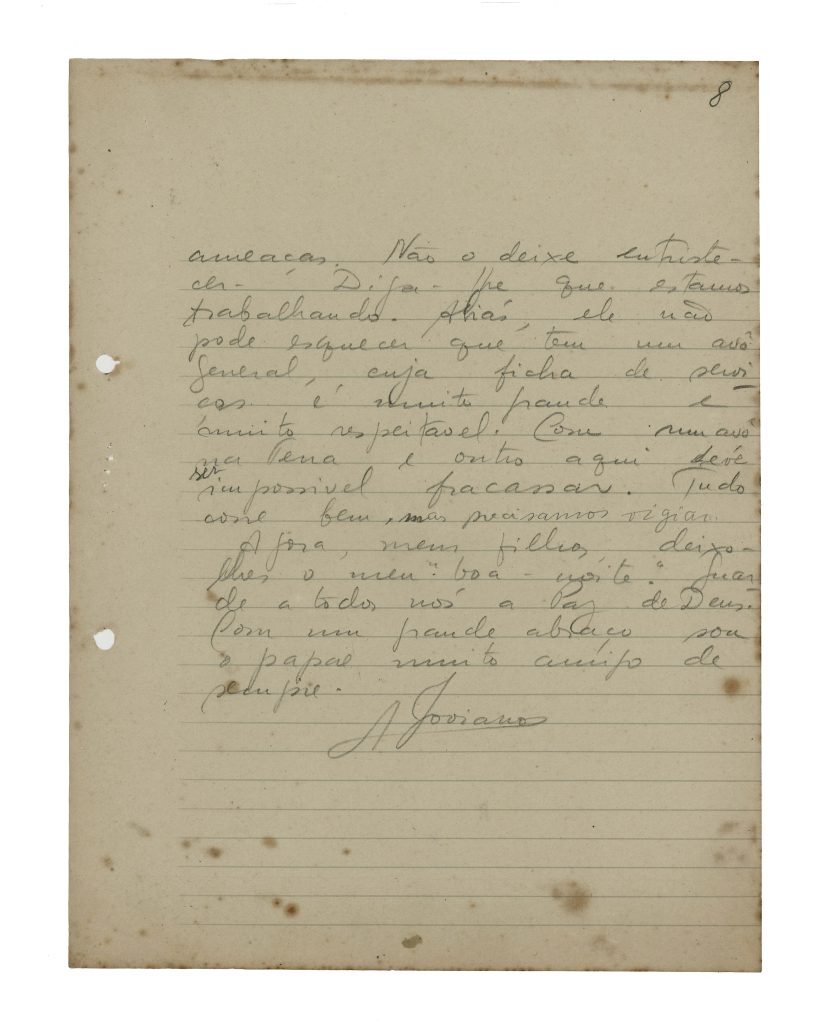 8
ameaças. Não o deixe entriste-
cer. Diga-lhe que estamos
trabalhando. Aliás, ele não
pode esquecer que tem um avô
general, cuja ficha de servi
ços é muito grande e
muito respeitavel. Com um avô
na Terra e outro aqui deve
ser
impossivel fracassar. Tudo
corre bem, mas precisamos vigiar.
Agora, meus filhos, deixo-
lhes o meu "boa-noite." Guar
de a todos nós a Paz de Deus.
Com um grande abraço sou
o papae muito amigo de
sempre.
A Joviano